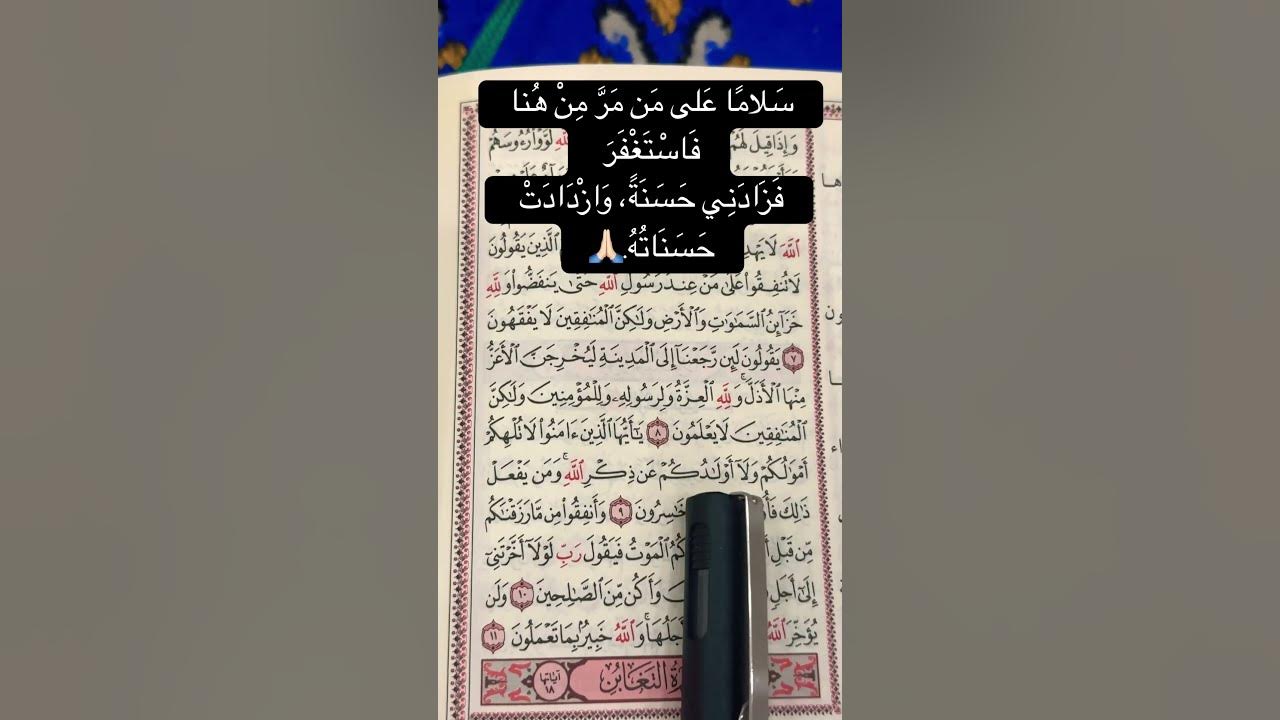 سَلامًا عَلى مَن مَرَّ مِنْ هُنا
فَاسْتَغْفَرَ
فَزَادَنِي حَسَنَةً، وَازْدَادَتْ
حَسَنَاتُهُ.🙏🏻
وَإِذَا قِيلَ لَهُمْ لَوَّوْا۟ رُءُوسَهُمْ
ٱللَّهَ لَا ٱلَّذِينَ يَقُولُونَ
لَا تُنفِقُوا۟ عَلَىٰ مَنْ عِندَ رَسُولِ ٱللَّهِ حَتَّىٰ يَنفَضُّوا۟ وَلِلَّهِ
خَزَآئِنُ ٱلسَّمَٰوَٰتِ وَٱلْأَرْضِ وَلَٰكِنَّ ٱلْمُنَٰفِقِينَ لَا يَفْقَهُونَ
٧ يَقُولُونَ لَئِن رَّجَعْنَآ إِلَى ٱلْمَدِينَةِ لَيُخْرِجَنَّ ٱلْأَعَزُّ
مِنْهَا ٱلْأَذَلَّ ۚ وَلِلَّهِ ٱلْعِزَّةُ وَلِرَسُولِهِۦ وَلِلْمُؤْمِنِينَ وَلَٰكِنَّ
ٱلْمُنَٰفِقِينَ لَا يَعْلَمُونَ ٨ يَٰٓأَيُّهَا ٱلَّذِينَ ءَامَنُوا۟ لَا تُلْهِكُمْ
أَمْوَٰلُكُمْ وَلَآ أَوْلَٰدُكُمْ عَن ذِكْرِ ٱللَّهِ ۚ وَمَن يَفْعَلْ
ذَٰلِكَ ٩ وَأَنفِقُوا۟ مِن مَّا رَزَقْنَٰكُم
مِّن قَبْلِ ٱلْمَوْتُ فَيَقُولَ رَبِّ لَوْلَآ أَخَّرْتَنِىٓ
إِلَىٰٓ أَجَلٍ وَأَكُن مِّنَ ٱلصَّٰلِحِينَ ١٠ وَلَن
يُؤَخِّرَ ٱللَّهُ وَٱللَّهُ خَبِيرٌۢ بِمَا تَعْمَلُونَ ١١
التَّغَابُنِ آياتها ١٨